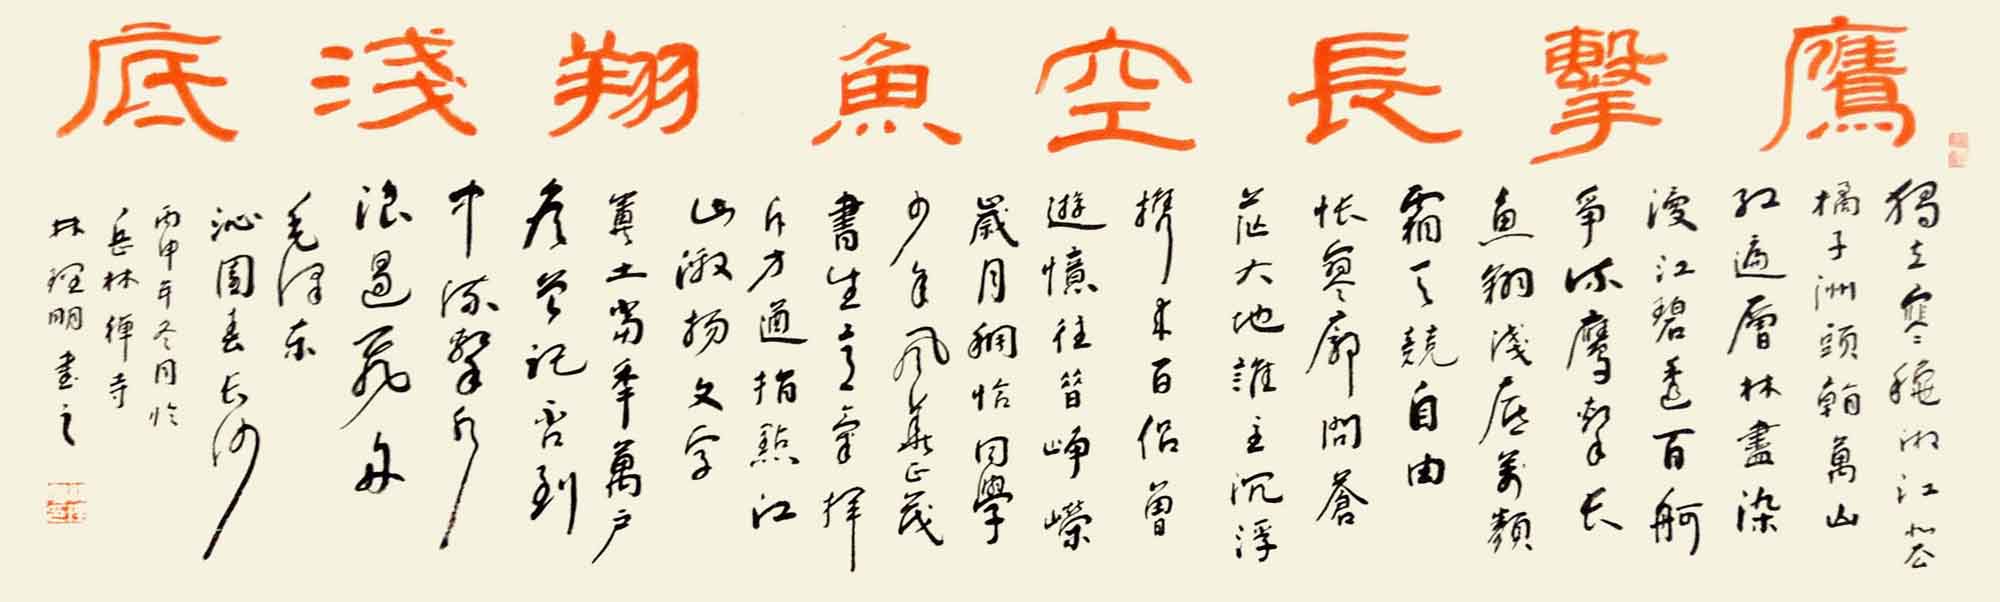 鷹擊長空魚翔淺底
獨立寒穐湘江北去
橘子洲頭看萬山
紅遍層林盡染
漫江碧透百舸
爭流鷹擊長
魚翔淺底萬類
霜天競自由
悵寥廓問蒼
茫大地誰主沉浮
攜來百侶曾
遊憶往昔崢嶸
歲月稠恰同學
少年風華正茂
書生意氣揮
斥方遒指點江
山激揚文字
糞土當年萬户
侯曾記否到
中流擊水
浪遏飛舟
毛澤東
沁園春長沙
丙申年冬月於
岳林禪寺
林理明書之